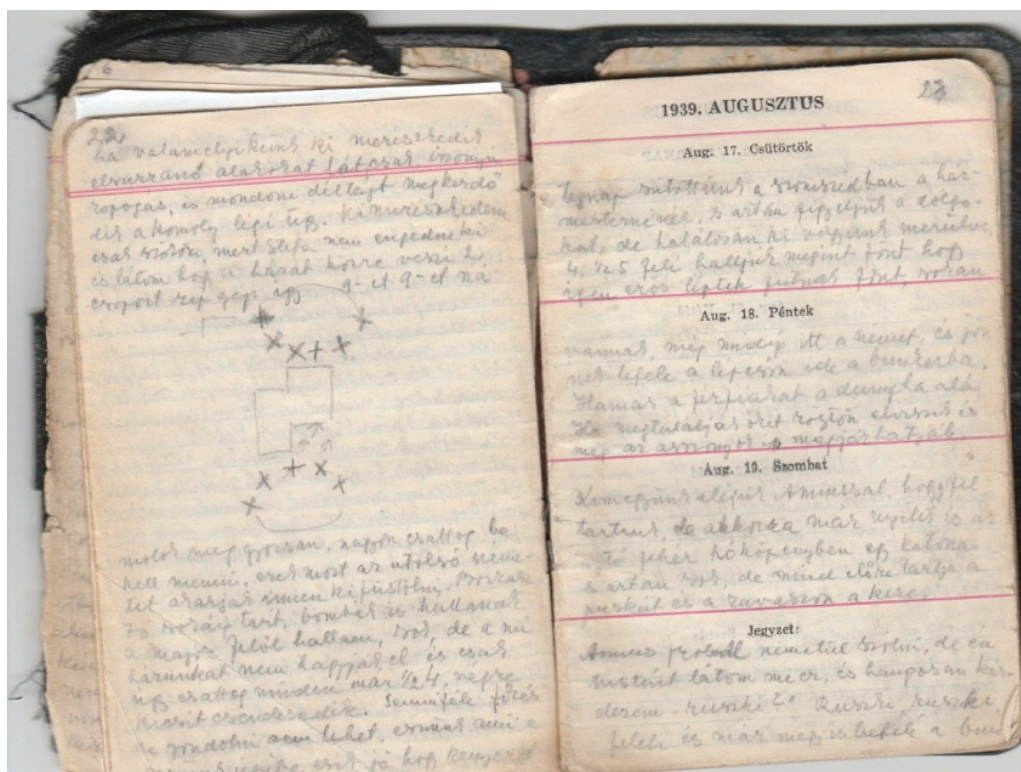 22
ha valamelyikünk ki merészkedik
elsuzzanó alakokat látosak, iszonyú
ropogás, és mondom déltájt megkezdő
dik a komoly légi üg. Kimerészkedem
csak mert Stefa nem engedne ki
és látom hogy a házat körre veszi 2
csoport rep gép, így 9-et 9-et na
molok meg gyorsan, nagyon csattog be
kell menni, ezek most az utolsó néme-
tet akarják innen kifüstölni. Borzas
tó sokáig tart, bombák is hullanak
a major felől hallom, sok, de a mi
házunkat nem hagyják el és csak
úgy csattog minden már 1/2 4, végre
kicsit csendesedik. Semmiféle főzés
re gondolni sem lehet, eszünk ami a
jó hogy kenyeret
6
23
1939. AUGUSZTUS
Aug. 17. Csütörtök
tegnap sütöttünk a szomszédban a hár-
s aztán figyeljük a dolgo-
kat, de halálosan ki vagyunk merülve
4. 1/2 5 felé halljuk megint fönt hogy
igen erős léptek futnak fönt, sokan
Aug. 18. Péntek
vannak, még mindig itt a német, és jön
nek lefele a lépcsőn ide a bunkerba.
Hamar a férfiakat a dunyha alá
Ha megtalálják őket rögtön elviszik és
még az asszonyok is megjárhatják.
Aug. 19. Szombat
Kimegyünk eléjük Annussal, hogy fel
tartsuk, de akkorra már nyílik is az
ajtó fehér hóköpenyben egy katona
s aztán sok, de mind előre tartja a
puskát és a ravaszon a keze,
Jegyzet:
Annus próbál németül szólni, de én
látom mier, és hangosan kér-
dezem „ruszki?" Ruszki, ruszki,
feleli és már meg is betek a bun